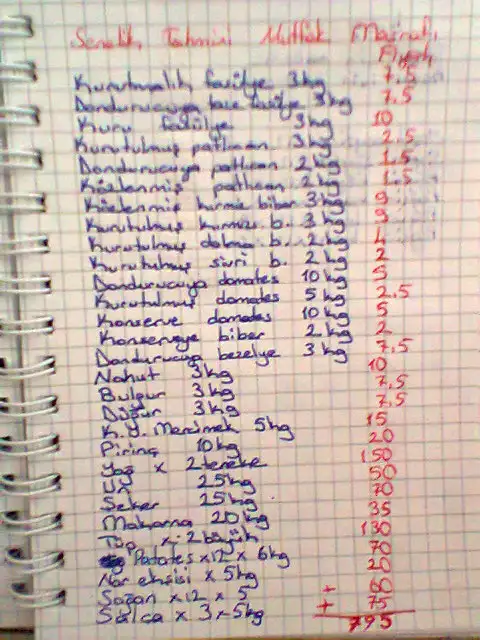 Senelik Tahmini Mutfak Masrafı
Fiyatı
Kurutmalık fasülye 3kg 7.5
Dondurucuya taze fasülye 3kg 7.5
Kuru fasülye 3kg 10
Kurutulmuş patlıcan 3kg 2.5
Dondurucuya patlıcan 2kg 1.5
Közlenmiş patlıcan 2kg 1.5
Közlenmiş kırmızı biber 3kg 9
Kurutulmuş kırmızı b. 3kg 9
Kurutulmuş dolma b. 2kg 4
Kurutulmuş sivri b. 2kg 2
Dondurucuya domates 10kg 5
Kurutulmuş domates 5kg 2.5
Konserve domates 10kg 5
Konserveye biber 2kg 2
Dondurucuya bezelye 3kg 7.5
Nohut 3kg 10
Bulgur 3kg 7.5
Düğür 3kg 7.5
K.Y. Mercimek 5kg 15
Pirinç 10kg 20
Yağ x 2 teneke 150
Un 25kg 50
Şeker 25kg 70
Makarna 20kg 35
Tüp x 2 büyük 130
Patates x 12 x 6kg 70
Nar ekşisi x 5kg 20
Soğan x 12 x 5 + 60
Salça x 3 x 5kg + 75
795